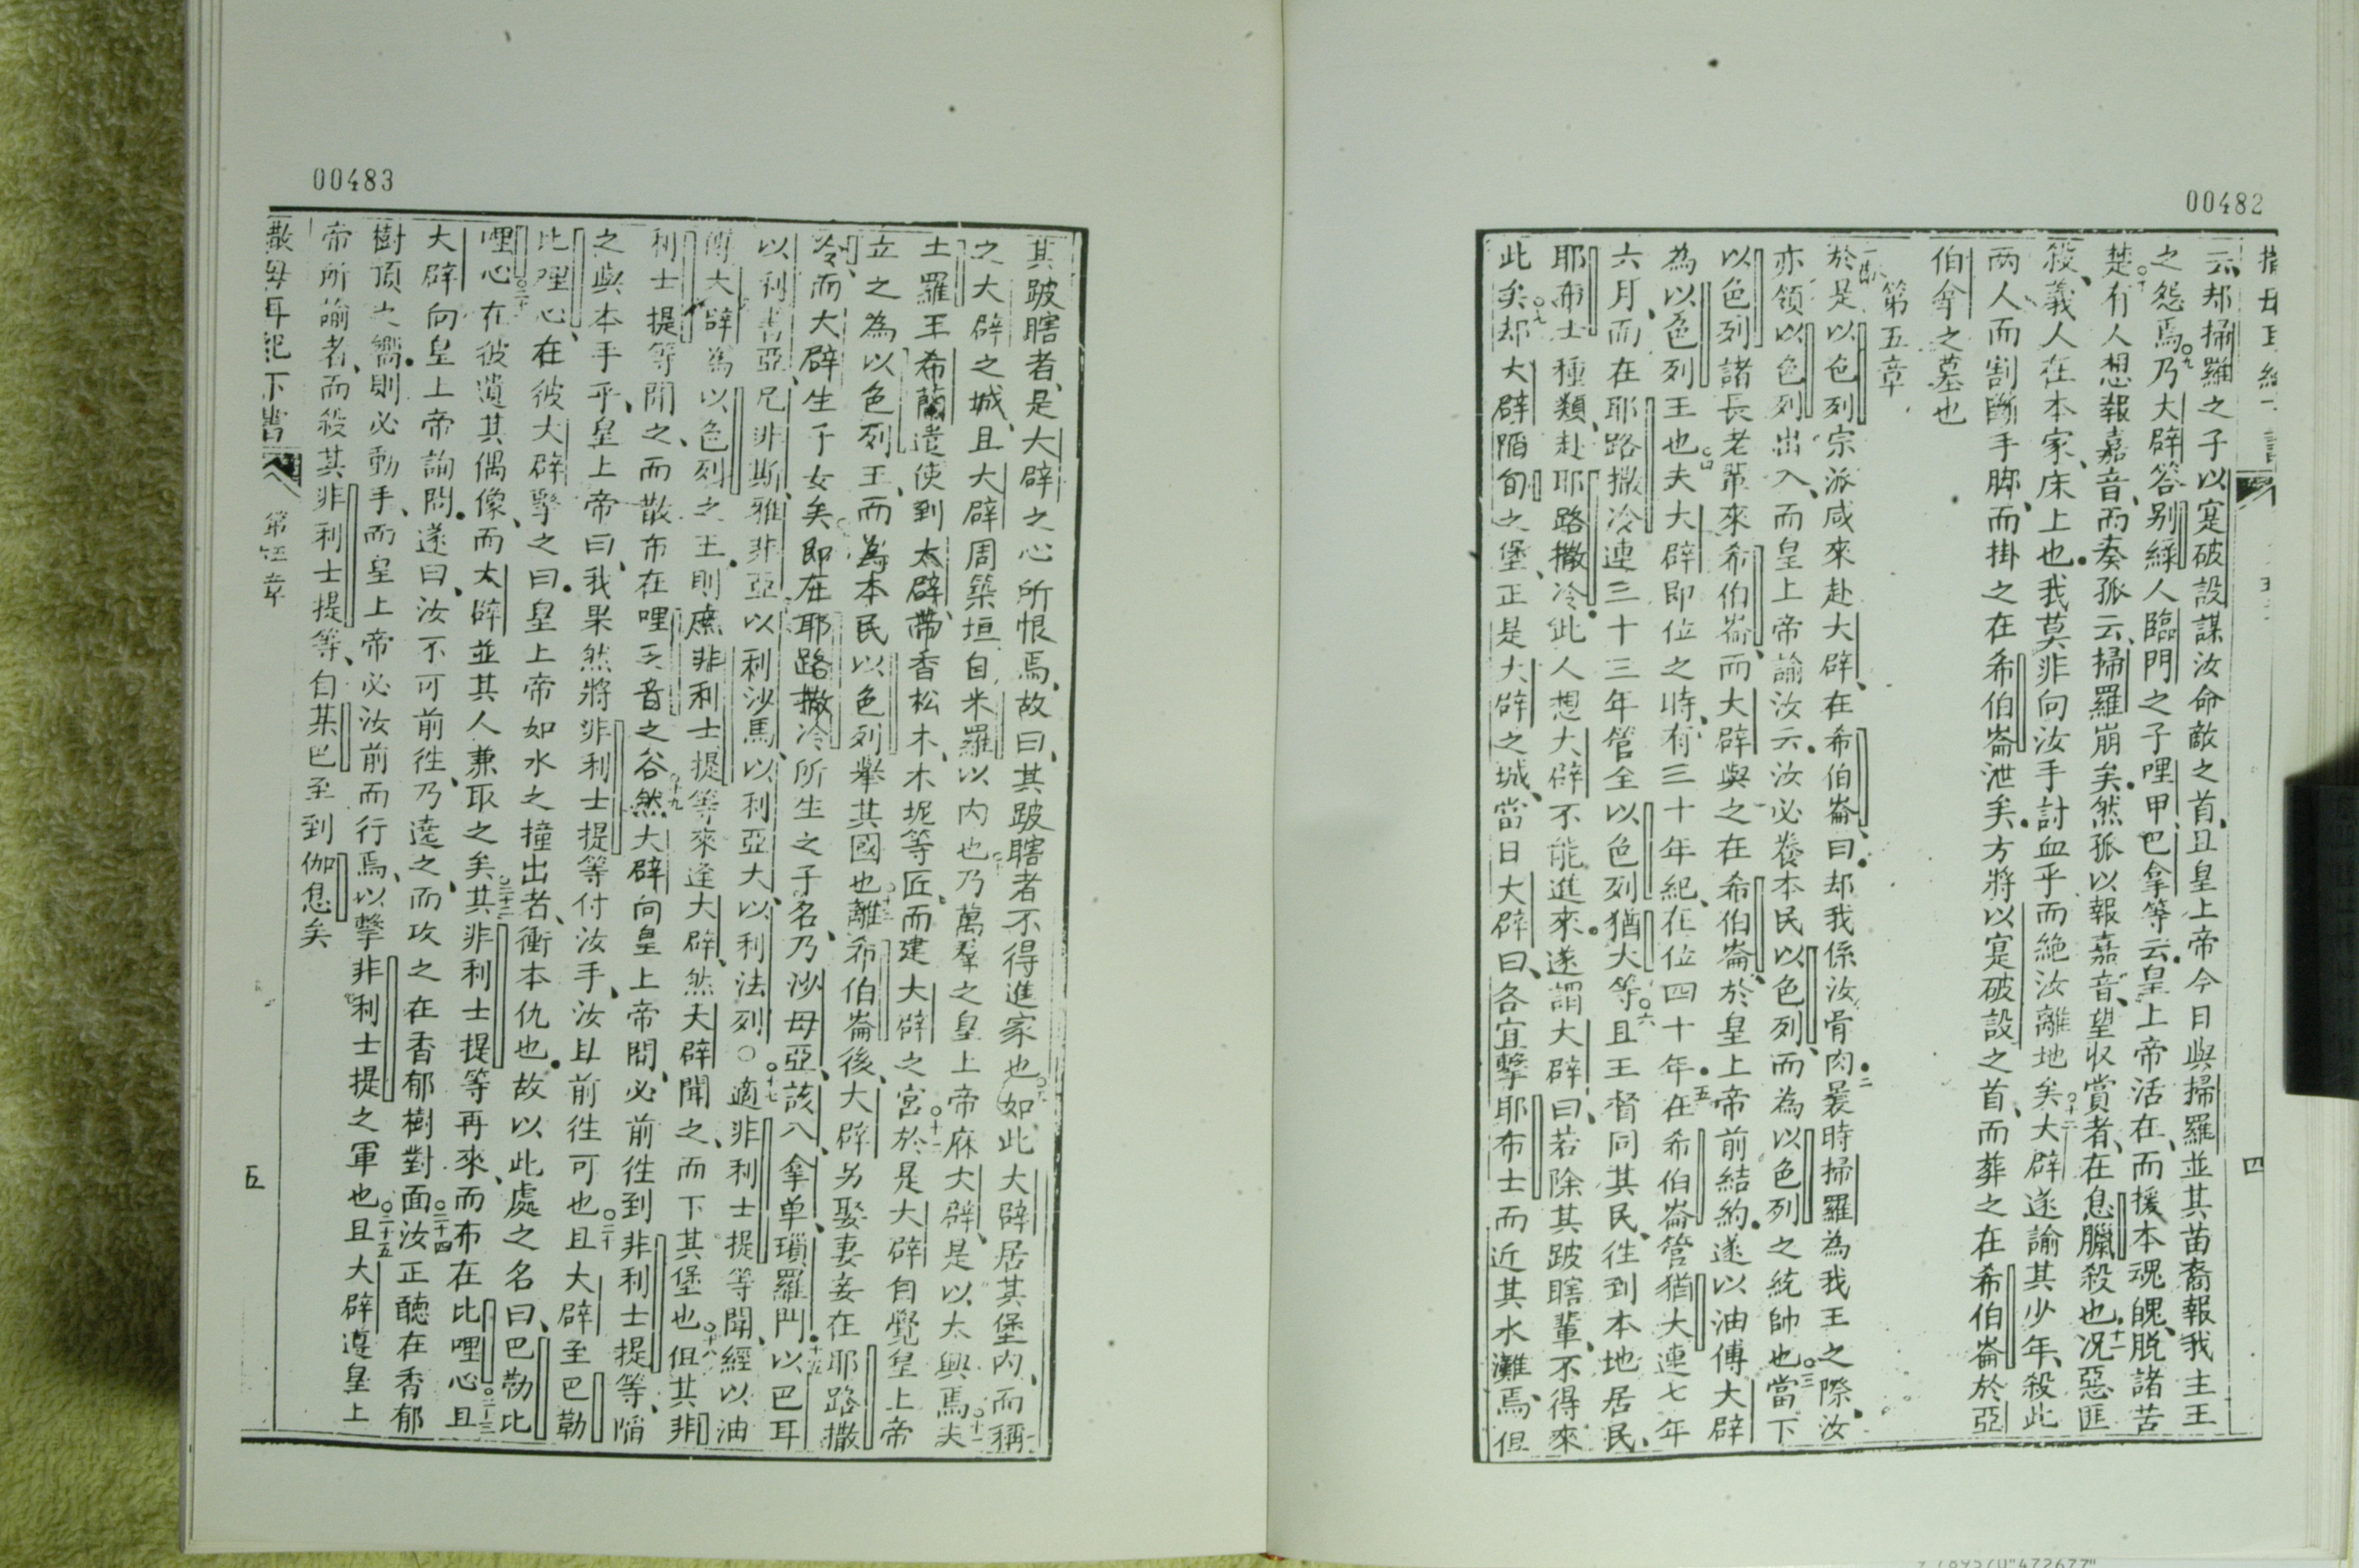 00482
云却掃羅之子以寔破設謀汝命敵之首且皇上帝今日與掃羅並其苗裔報我主王
之怨焉○九乃大辟答別綠人臨門之子哩甲巴拿等云皇上帝活在、而援本魂魄、脱諸苦
楚○十有人想報嘉音、而奏孤云、掃羅崩矣然孤以報嘉音、望収賞者、在息臘殺也○十一况惡匪
殺義人在本家、床上也我莫非向汝手討血乎而絶汝離地矣○十二大辟遂諭其少年、殺此
兩人而割斷手脚、而掛之在希伯崙池矣方將以寔破設之首、而葬之在希伯崙於亞
伯拿之墓也
第五章
於是以色列宗派咸來赴大辟、在希伯崙、曰却我係汝骨肉二曩時掃羅為我王之際汝
亦領以色列出入、而皇上帝諭汝云汝必養本民以色列、而為以色列之統帥也○三當下
以色列諸長老輩來希伯崙、而大辟與之在希伯崙、於皇上帝前結約遂以油傅大辟
為以色列王也○四夫大辟即位之時、有三十年紀、在位四十年五在希伯崙管猶大連七年
六月、而在耶路撒冷連三十三年管全以色列猶大等○六且王督同其民、徃到本地居民、
耶布士種類、赴耶路撒冷此人想大辟不能進來遂謂大辟曰若除其跛瞎輩、不得來
此矣○七却大辟陷旬之堡、正是大辟之城、當日大辟曰、各宜擊耶布士而近其水灘焉、但
四
00483
其跛瞎者、是大辟之心所恨焉、故曰、其跛瞎者不得進家也○九如此大辟居其堡内、而稱
之大辟之城、且大辟周築垣自米羅以内也○十乃萬羣之皇上帝庥大辟、是以大興焉○十一夫
土羅王希蘭遣使到大辟、帶香松木、木坭等匠、而建大辟之宮○十二於是大辟自覺皇上帝
立之為以色列王、而為本民以色列舉其國也○十三離希伯崙後、大辟另娶妻妾在耶路撒
冷、而大辟生子女矣即在耶路撒冷所生之子名、乃沙母亞、該八、拿單、瑣羅門○十五以巴耳
以利書亞尼非斯、雅非亞以利沙馬、以利亞大、以利法列○○十七適非利士提等聞、經以油
傅大辟為以色列之王則庶非利士提等來逢大辟、然大辟聞之、而下其堡也○十八但其非
利士提等聞之、而散布在哩乏音之谷○十九然大辟向皇上帝問、必前徃到非利士提等、陷
之與本手乎、皇上帝曰、我果然將非利士提等付汝手、汝且前徃可也○二十且大辟至巴勒
比哩心、在彼大辟擊之曰皇上帝如水之撞出者、衝本仇也故以此處之名曰、巴勒比
哩心○二十一在彼遺其偶像、而大辟並其人兼取之矣○二十二其非利士提等再來、而布在比哩心○二十三且
大辟向皇上帝諭問遂曰、汝不可前徃、乃遶之、而攻之在香郁樹對面○二十四汝正聽在香郁
樹頂之嚮則必動手、而皇上帝必汝前而行焉、以擊非利士提之軍也○二十五且大辟遵皇上
帝所諭者、而殺其非利士提等、自某巴至到伽息矣
撒母耳紀下書
第五章
五